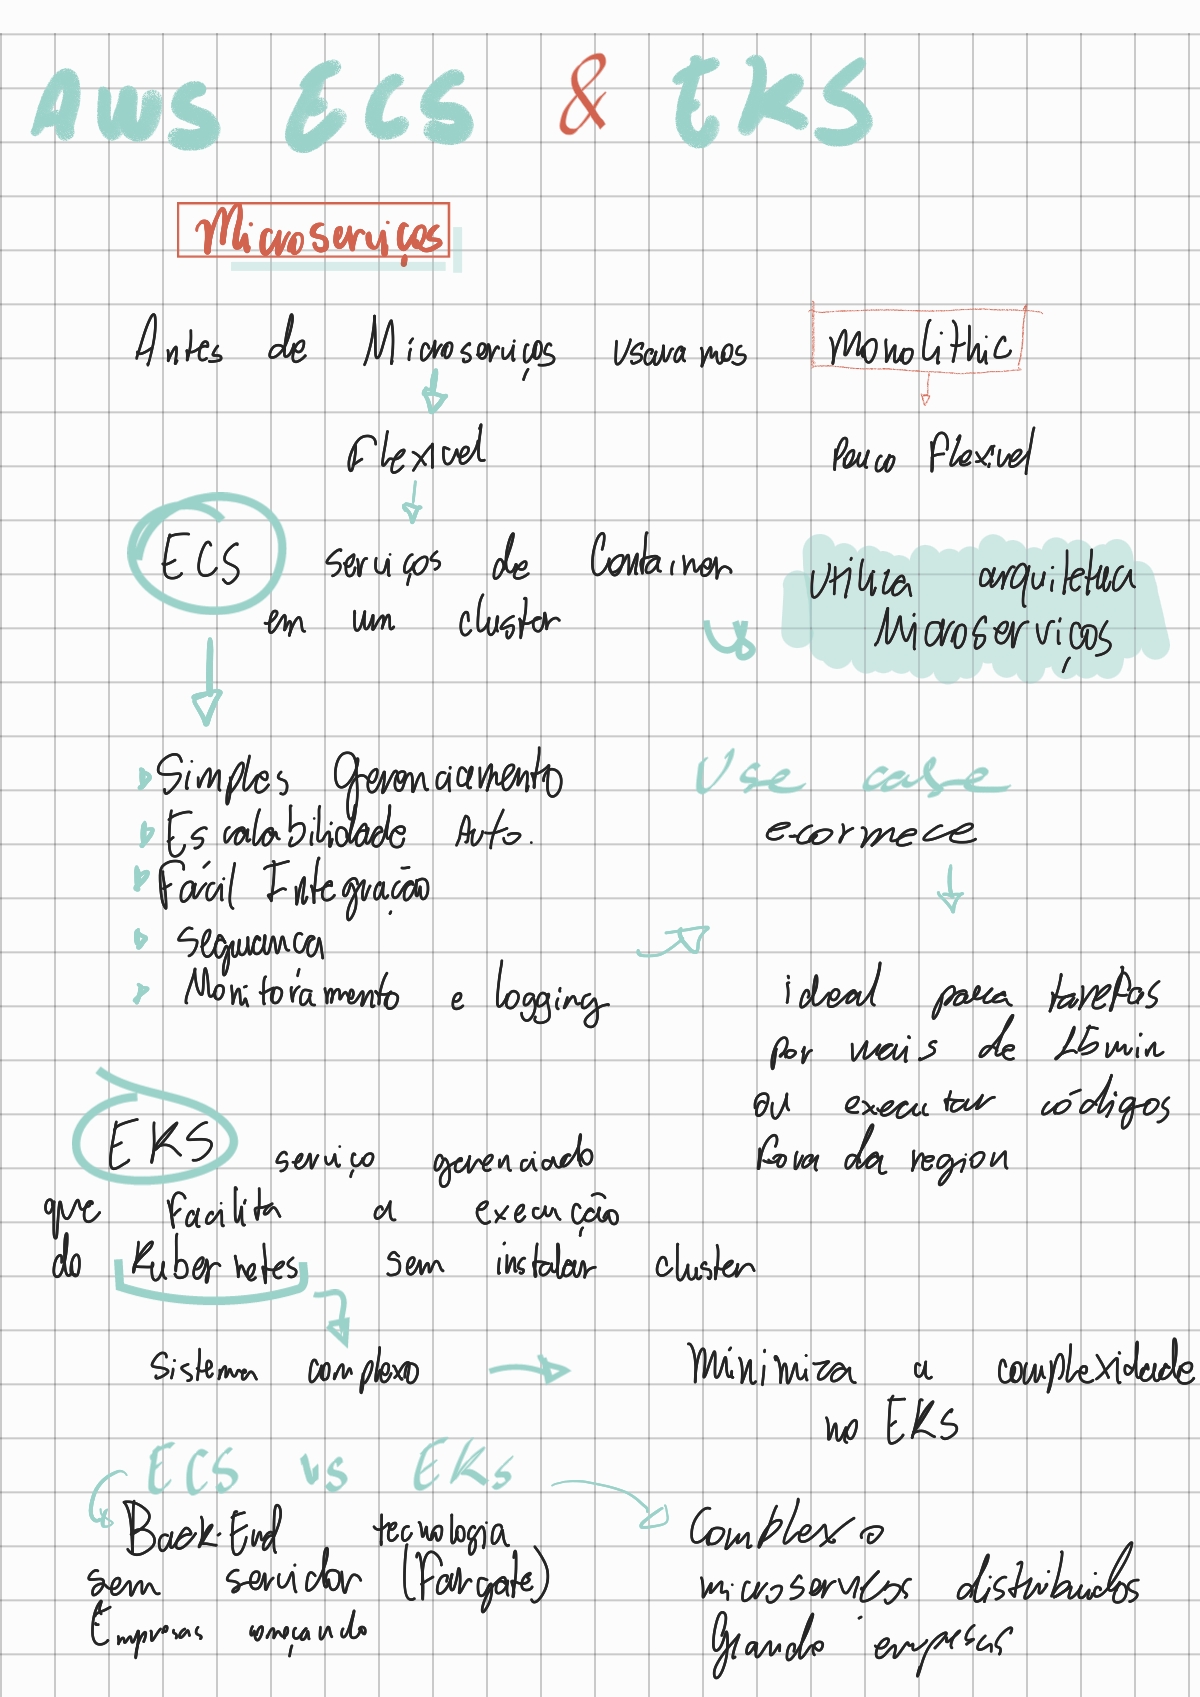 AWS ECS & EKS
Microserviços
Antes de Microserviços usaramos Monolithic
Flexivel
Pouco Flexivel
ECS serviços de Container
em um cluster
Utiliza arquitetua
Microserviços
Simples Gerenciamento
Escalabilidade Auto.
Fácil Integração
segurança
Monitoramento e logging
Use case
e-cormece
ideal para tarefas
por mais de 15min
ou executar códigos
Fora da region
EKS serviço gerenciado
que facilita a execução
do Kubernetes sem instalar cluster
Sistema complexo
Minimiza a complexidade
no EKS
ECS vs EKS
Back-End tecnologia
sem servidor (Fargate)
Empresas começando
Complexo
microservicos distribuidos
Grande empresas